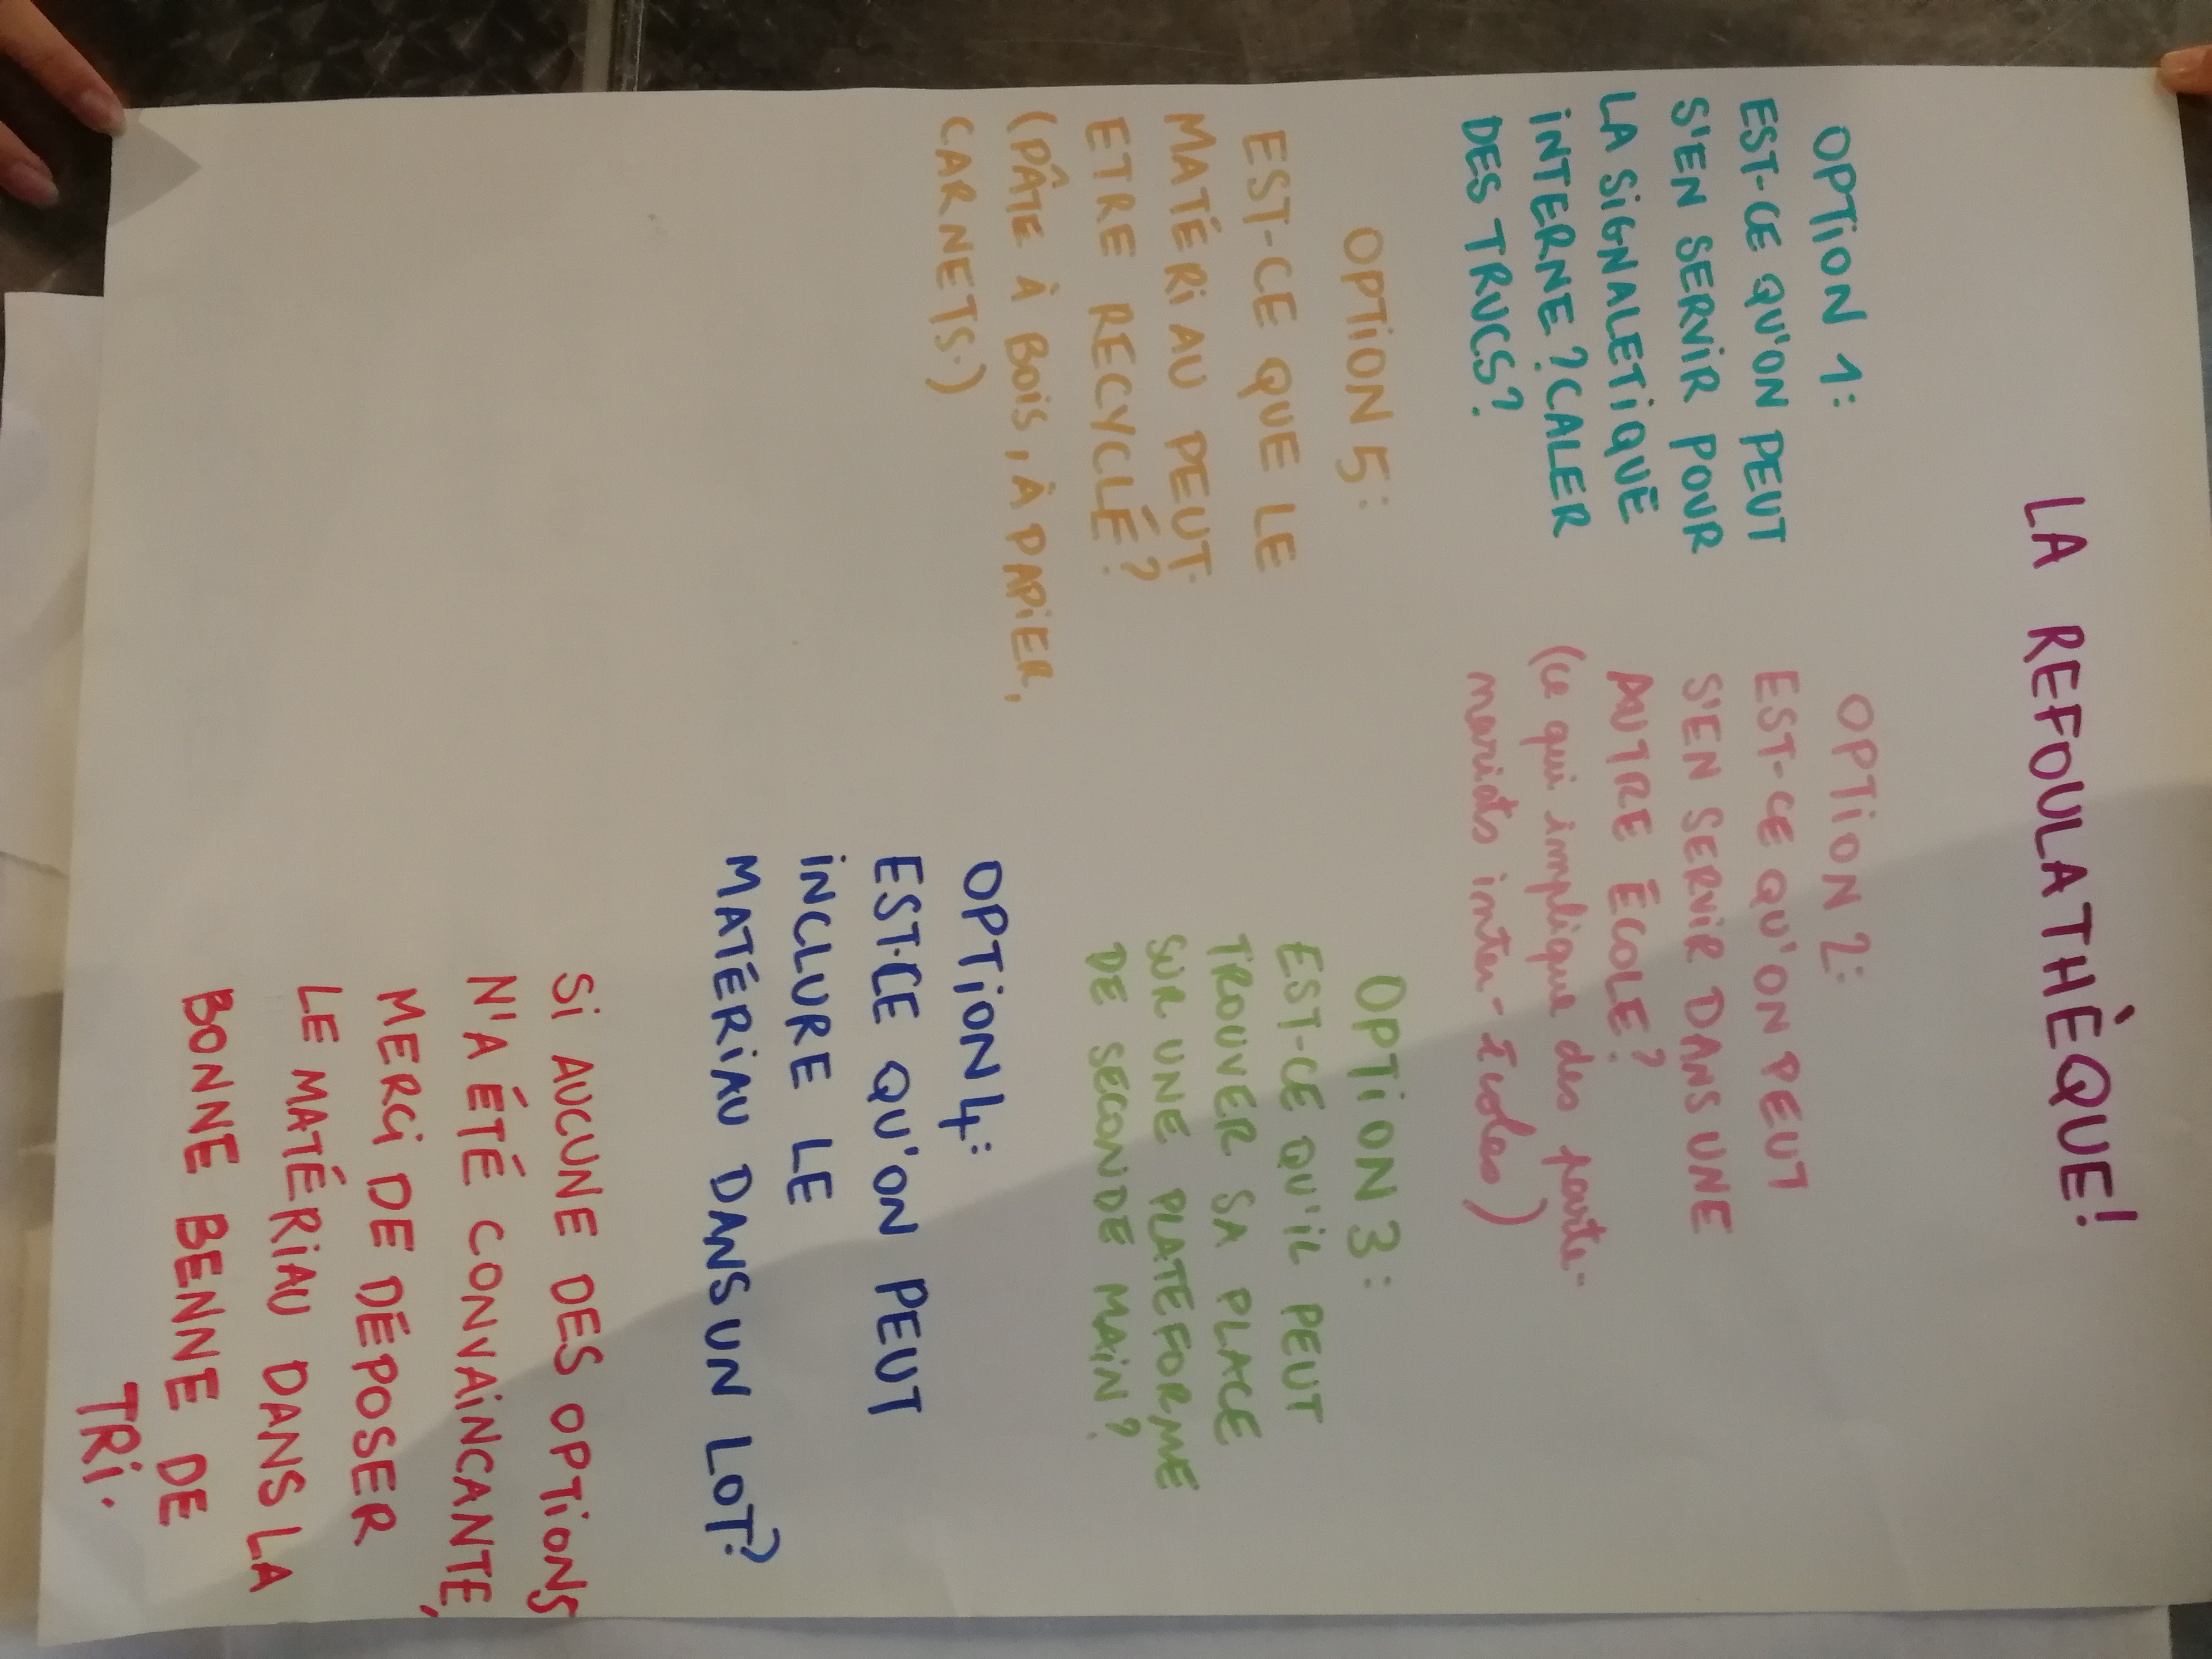 LA REFOULATHÈQUE!
OPTION 1:
EST-CE QU'ON PEUT
S'EN SERVIR POUR
LA SIGNALETIQUE
INTERNE? CALER
DES TRUCS?
OPTION 2:
EST-CE QU'ON PEUT
S'EN SERVIR DANS UNE
AUTRE ÉCOLE?
(ce qui implique des parte-
nariats inter-Écoles)
OPTION 3:
EST-CE QU'IL PEUT
TROUVER SA PLACE
SUR UNE PLATEFORME
DE SECONDE MAIN?
OPTION 4:
EST-CE QU'ON PEUT
INCLURE LE
MATÉRIAU DANS UN LOT?
OPTION 5:
EST-CE QUE LE
MATÉRIAU PEUT
ETRE RECYCLÉ?
(PÂTE À BOIS, À PAPIER,
CARNETS.)
SI AUCUNE DES OPTIONS
N'A ÉTÉ CONVAINCANTE,
MERCI DE DÉPOSER
LE MATÉRIAU DANS LA
BONNE BENNE DE
TRI.